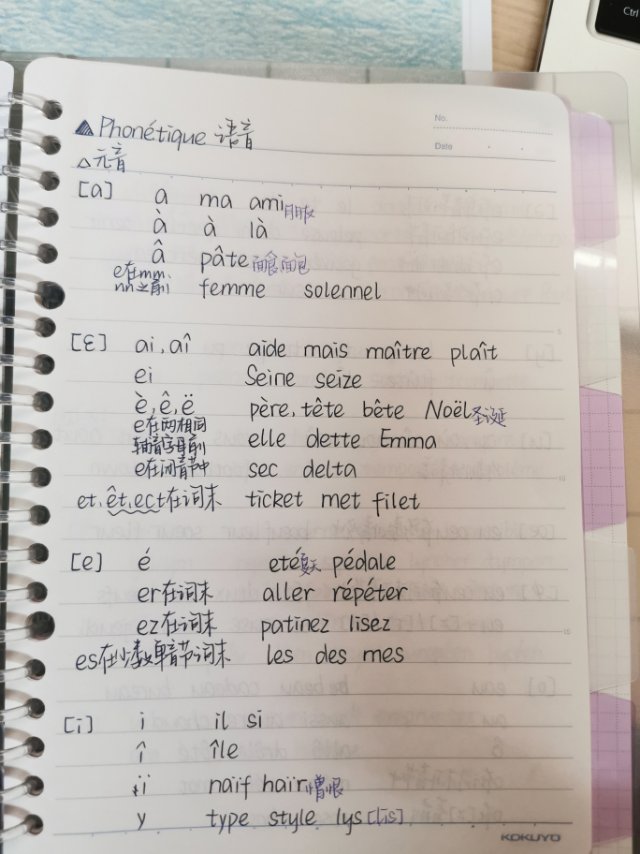 Ctrl
Phonétique 语音
No.
Date
△元音
[a] a ma ami朋友
à à là
â pâte 面食面包
e在mm,
nn之前 femme solennel
[ɛ] ai, aî aide mais maître plaît
ei Seine seize
è, ê, ë père, tête bête Noël圣诞
e在两相同
辅音字母前 elle dette Emma
e在闭音节中 sec delta
et, êt, ect在词末 ticket met filet
[e] é eté夏天 pédale
er在词末 aller répéter
ez在词末 patinez lisez
es在少数单音节词末 les des mes
[i] i il si
î île
ï naïf haïr憎恨
y type style lys[lis]
KOKUYO